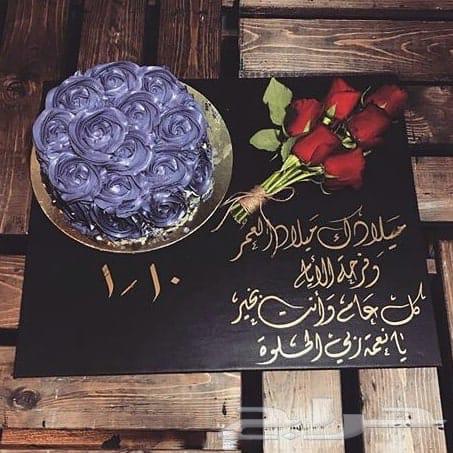 ميلادك ميلاد العمر
وفرحة الأيام
كل عام وأنت بخير
يا نعمة ربي الحلوة
١٠ / ١
حراج